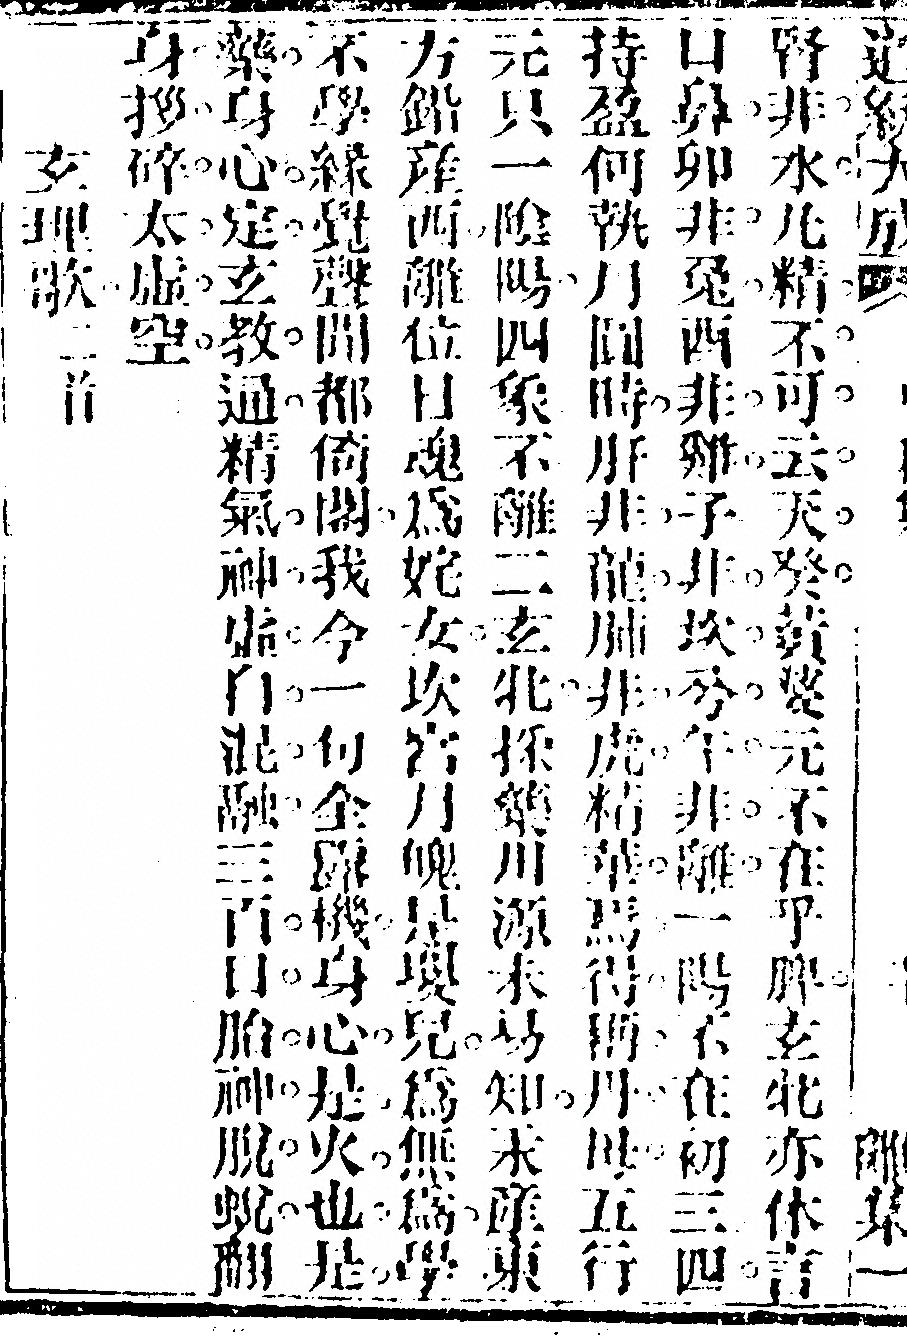 腎非水凡精不可云天癸黃婆元不在乎脾玄牝亦休言
口鼻卯非兔酉非雞子非坎兮午非離一陽不在初三四
持盈何執月圓時肝非龍肺非虎精華焉得稱丹母五行
元只一陰陽四象不離二玄牝採藥川源未易知未產東
方鉛產西離位日魂為姹女坎宮月魄是嬰兒為無為學
不學緣覺聲聞都倚閣我今一句全露機身心是火也是
藥身心定玄教通精氣神虛白混融三百日胎神脫蛻翻
身拶碎太虛空
玄理歌二首